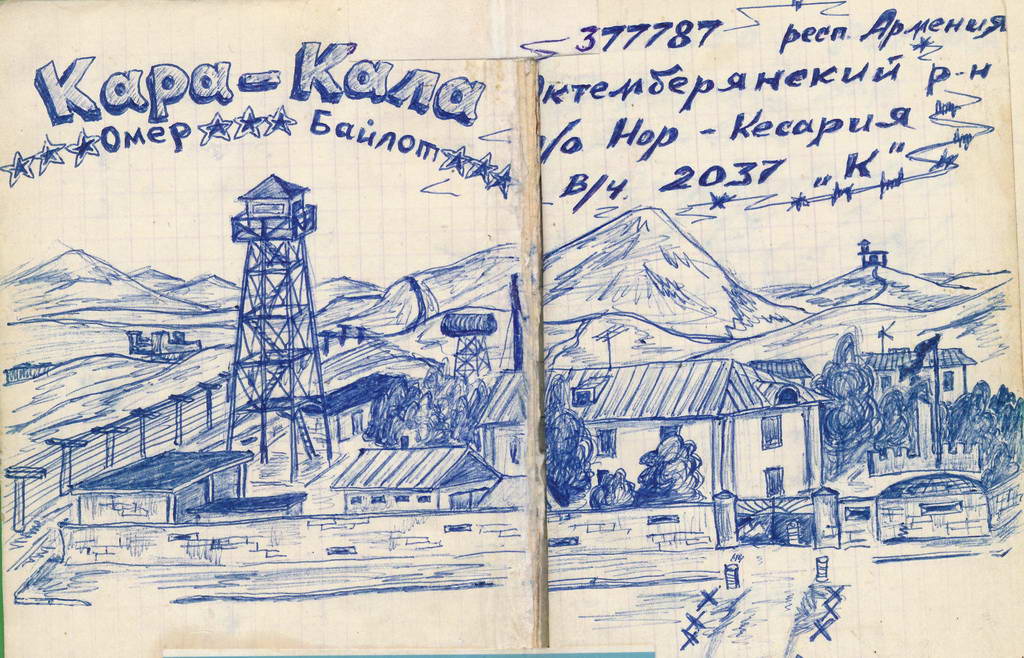 Кара-Кала
Омер Байлот
377787 респ. Армения
Октемберянский р-н
п/о Нор-Кесария
в/ч 2037 „К"